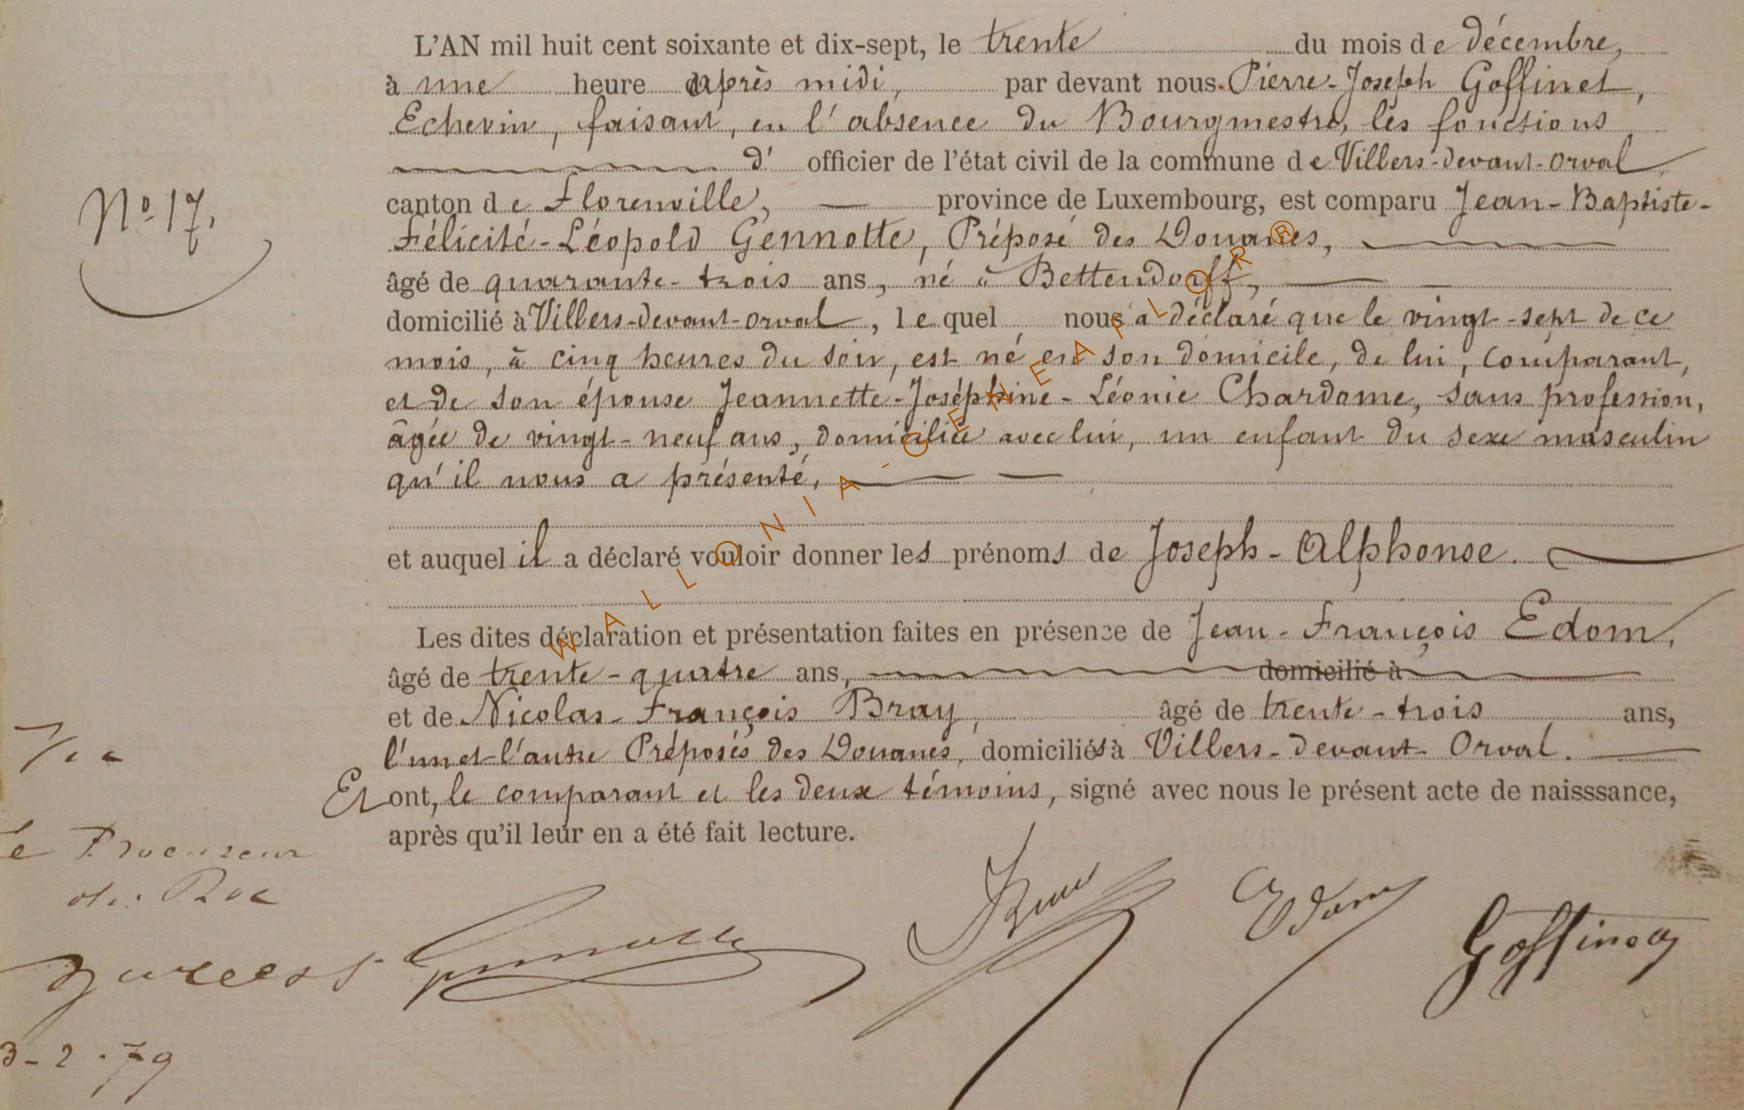 L'AN mil huit cent soixante et dix-sept, le trente du mois de décembre,
à une heure après midi, par devant nous Pierre-Joseph Goffinet,
Echevin, faisant, en l'absence du Bourgmestre, les fonctions
d' officier de l'état civil de la commune de Villers-devant-Orval,
N° 17.
canton de Florenville, — province de Luxembourg, est comparu Jean-Baptiste-
Félicité-Léopold Gennotte, Préposé des Douanes,
âgé de quarante-trois ans, né à Bettendorff,
domicilié à Villers-devant-orval, lequel nous a déclaré que le vingt-sept de ce
mois, à cinq heures du soir, est né en son domicile, de lui, comparant,
et de son épouse Jeannette-Joséphine-Léonie Chardome, sans profession,
âgée de vingt-neuf ans, domiciliée avec lui, un enfant du sexe masculin
qu'il nous a présenté,
et auquel il a déclaré vouloir donner les prénoms de Joseph-Alphonse.
Les dites déclaration et présentation faites en présence de Jean-François Edom,
âgé de trente-quatre ans, domicilié à
et de Nicolas-François Bray, âgé de trente-trois ans,
l'un et l'autre Préposés des Douanes, domiciliés à Villers-devant-Orval.
Et ont, le comparant et les deux témoins, signé avec nous le présent acte de naisssance,
après qu'il leur en a été fait lecture.
Vu
le Procureur
du Roi
3-2-79
Gennotte
Bray
Edom
Goffinet
WALLONIA-GENEAFLOR®